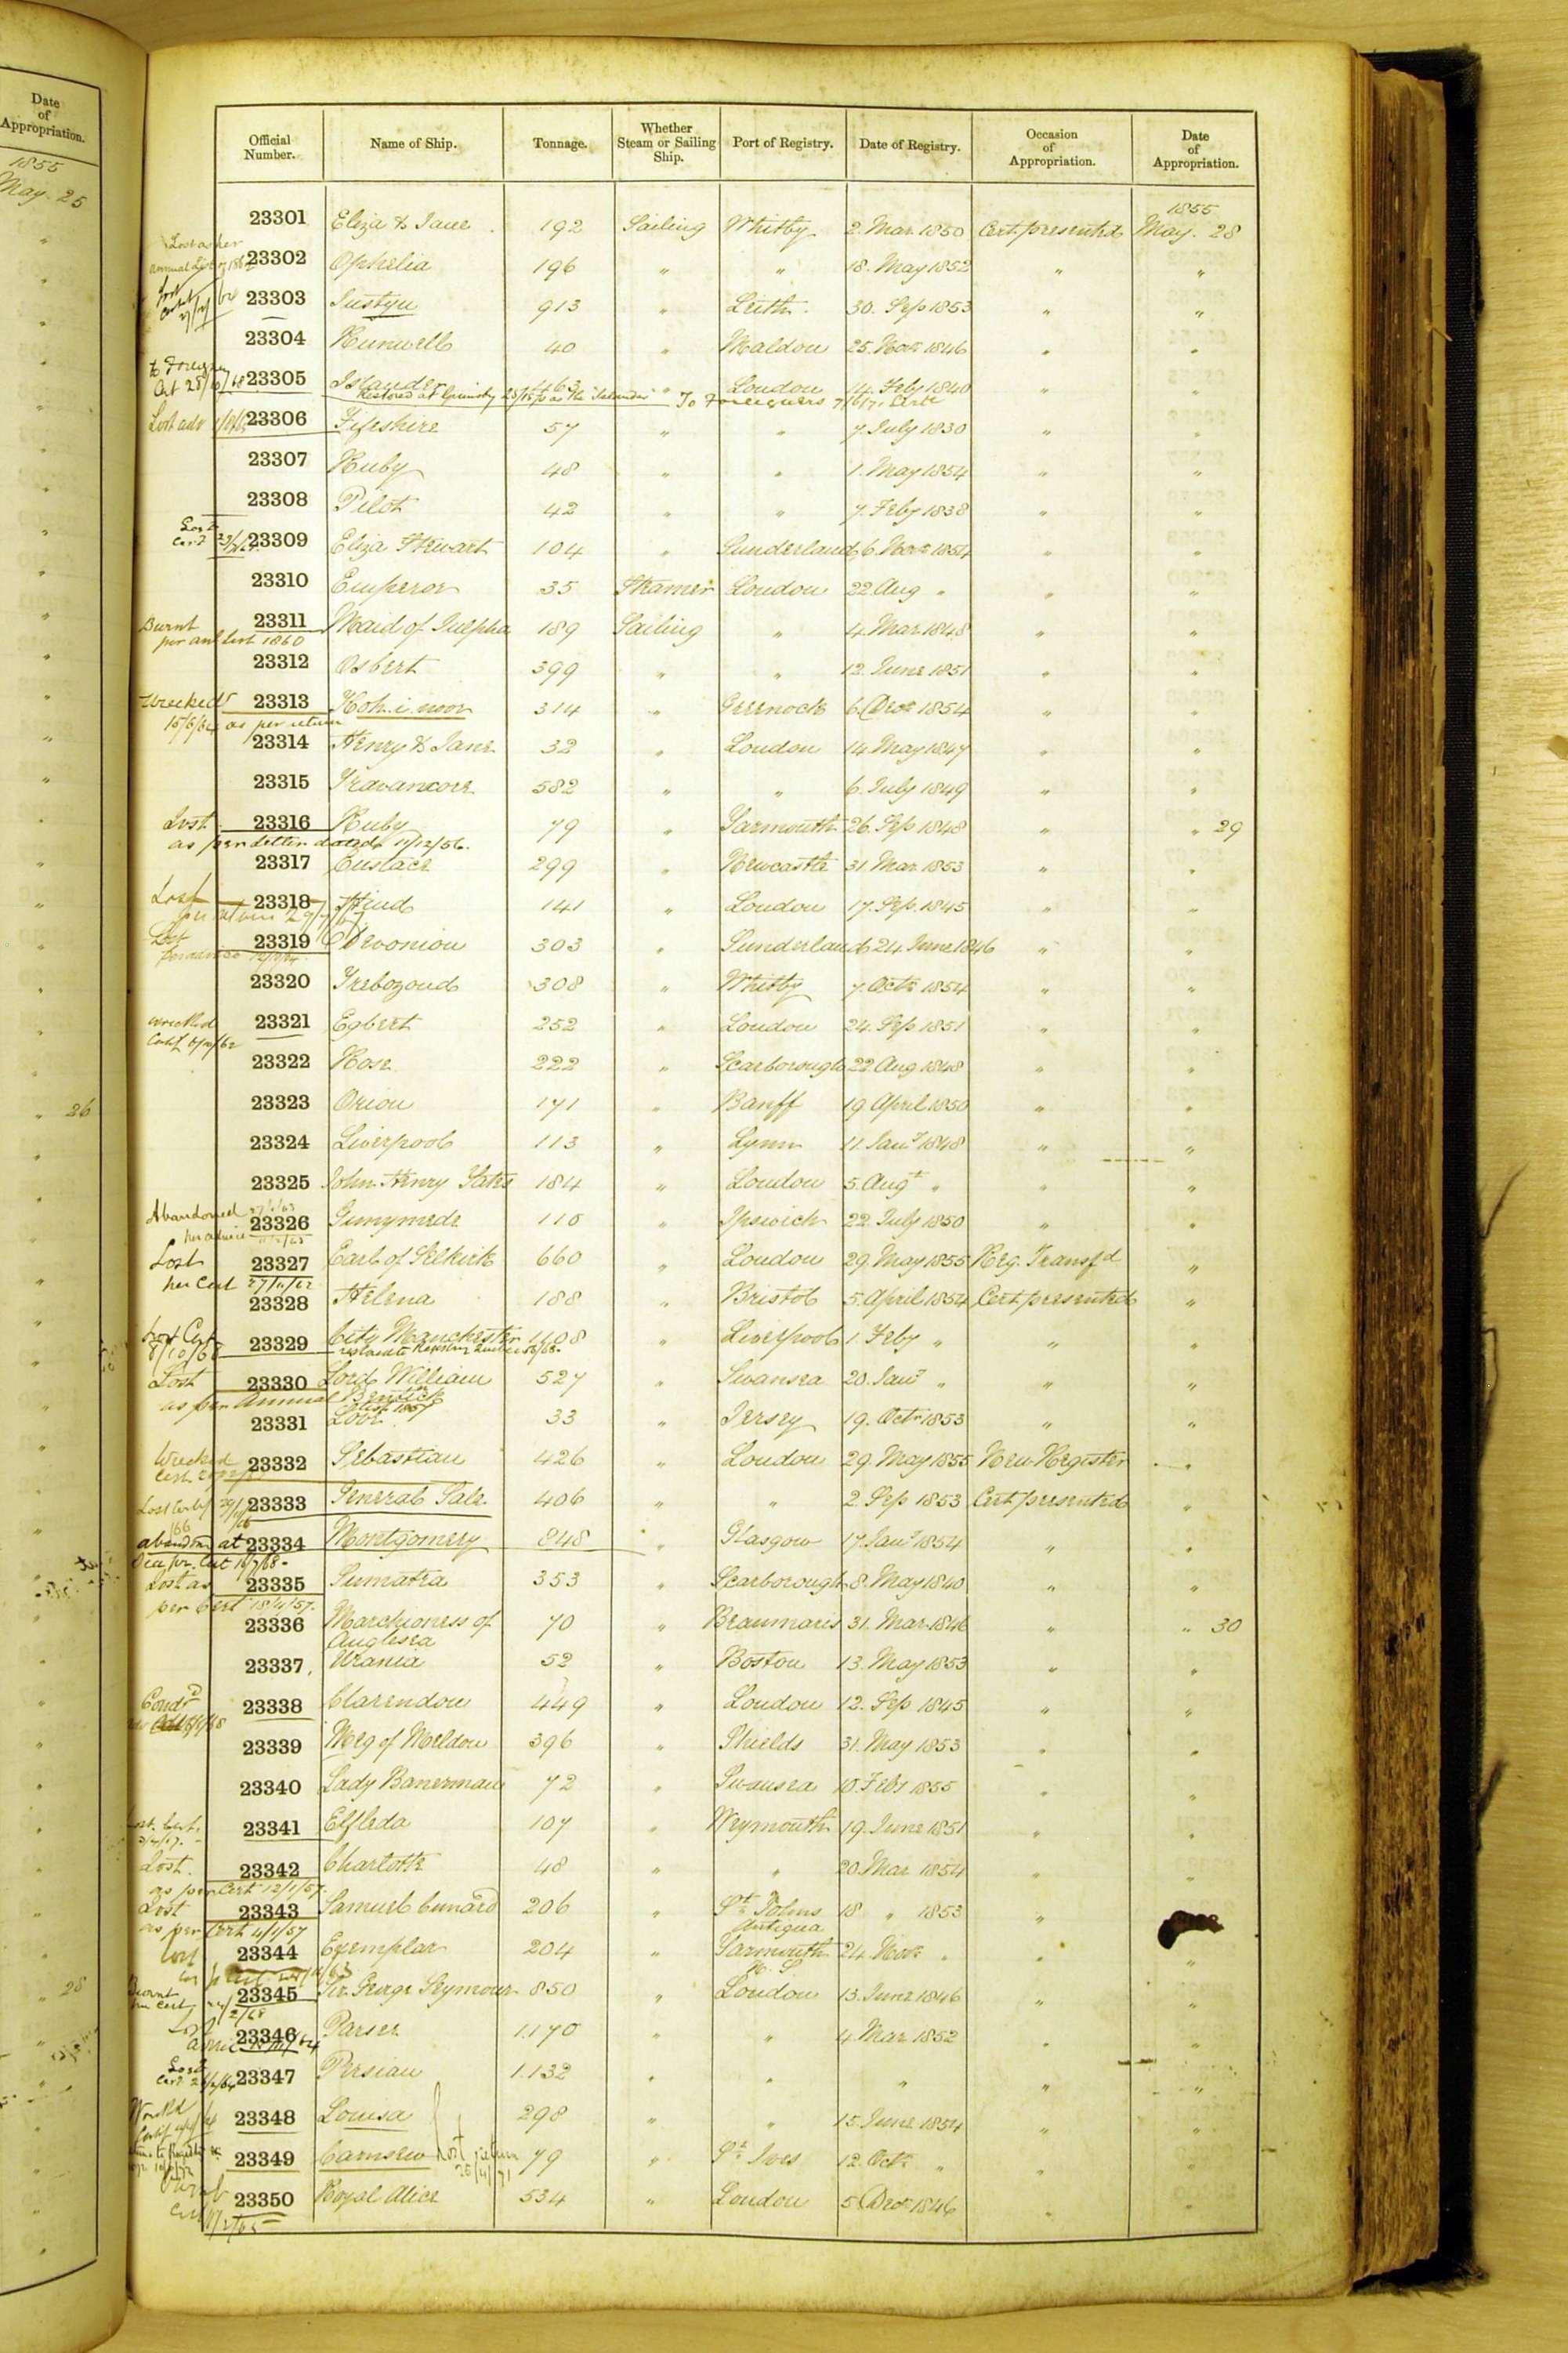 Date
of
Appropriation.
1855
May. 25
"
26
28
Official Number. Name of Ship. Tonnage. Whether Steam or Sailing Ship. Port of Registry. Date of Registry. Occasion of Appropriation. Date of Appropriation.
1855
23301 Eliza & Jane 192 Sailing Whitby 2. Mar 1850 Cert presented May. 28
Lost as per annual List of 186
23302 Ophelia 196 " " 18. May 1852 " "
23303 Justyn 913 " Leith. 30. Sep 1853 " "
23304 Runwell 40 " Maldon 25. Nov 1846 " "
to Foreign Cert 28/10/68 23305 Islander 463 " London 14. Feby 1840 " "
Restored at Grimsby as the "Islander" To Foreigners Certe
Lost adv 23306 Fifeshire 57 " " 7. July 1830 " "
23307 Ruby 48 " " 1. May 1854 " "
23308 Pilot 42 " " 7. Feby 1838 " "
Lost Cert 23309 Eliza Stewart 104 " Sunderland 6. Nov 1854 " "
23310 Emperor 35 Steamer London 22. Aug " " "
Burnt 23311 Maid of Julpha 189 Sailing " 4. Mar 1848 " "
per anl list 1860
23312 Osbert 399 " " 12. June 1851 " "
Wrecked 23313 Koh. i. noor 314 " Greenock 6. Decr 1854 " "
15/6/64 as per return
23314 Henry & Jane 32 " London 14. May 1847 " "
23315 Travancore 582 " " 6. July 1849 " "
Lost 23316 Ruby 79 " Yarmouth 26. Sep 1848 " " 29
as per letter dated 11/12/56.
23317 Eustace 299 " Newcastle 31. Mar 1853 " "
Lost 23318 Hind 141 " London 17. Sep. 1845 " "
Lost 23319 Devonion 303 " Sunderland 24. June 1846 " "
per advice
23320 Trebozond 308 " Whitby 7. Octr 1854 " "
wrecked 23321 Egbert 252 " London 24. Sep 1851 " "
Certf
23322 Rose 222 " Scarborough 22. Aug 1848 " "
23323 Orion 171 " Banff 19. April 1850 " "
23324 Liverpool 113 " Lynn 11. Jany 1848 " "
23325 John Henry Yates 184 " London 5. Augt " " "
Abandoned 23326 Gunymede 110 " Ipswich 22. July 1850 " "
per advice
Lost 23327 Earl of Selkirk 660 " London 29. May 1855 Reg. Transfd "
per Cert 27/11/62
23328 Helena 188 " Bristol 5. April 1854 Cert presented "
Lost Cert 8/10/68 23329 City Manchester 1108 " Liverpool 1. Feby " " "
Lost 23330 Lord William Bentick 527 " Swansea 20. Jany " " "
as per Annual List 1857
23331 33 " Jersey 19. Octr 1853 " "
Wrecked 23332 Sebastian 426 " London 29. May 1855 New Register "
23333 General Sale 406 " " 2. Sep 1853 Cert presented "
abandond at 23334 Montgomery 848 " Glasgow 17. Jany 1854 " "
Sea pr. Cert 16/7/68.
Lost as 23335 Sumatra 353 " Scarborough 8. May 1840 " "
per Cert 18/4/57.
23336 Marchioness of Anglesea 70 " Beaumaris 31. Mar. 1846 " " 30
23337 Urania 52 " Boston 13. May 1853 " "
Condd 23338 Clarendon 449 " London 12. Sep 1845 " "
23339 Meg of Meldon 396 " Shields 31. May 1853 " "
23340 Lady Banerman 72 " Swansea 10. Feby 1855 " "
23341 Elfleda 107 " Weymouth 19. June 1851 " "
Lost. 23342 Charlotte 48 " " 20. Mar 1854 " "
as per Cert 12/1/57.
Lost 23343 Samuel Cunard 206 " St Johns Antigua 18 " 1853 "
as per Cert 4/1/57
Lost 23344 Exemplar 204 " Yarmouth N. S 24. Novr " " "
Burnt 23345 Sir George Seymour 850 " London 13. June 1846 " "
23346 Parsee 1.170 " " 4. Mar 1852 " "
Lost Cert 23347 Persian 1.132 " " " " "
23348 Louisa 298 " " 15. June 1854 " "
23349 Carnsew 79 " St Ives 12. Octr " " "
Lost return 25/4/71
23350 Royal Alice 534 " London 5. Decr 1846 " "